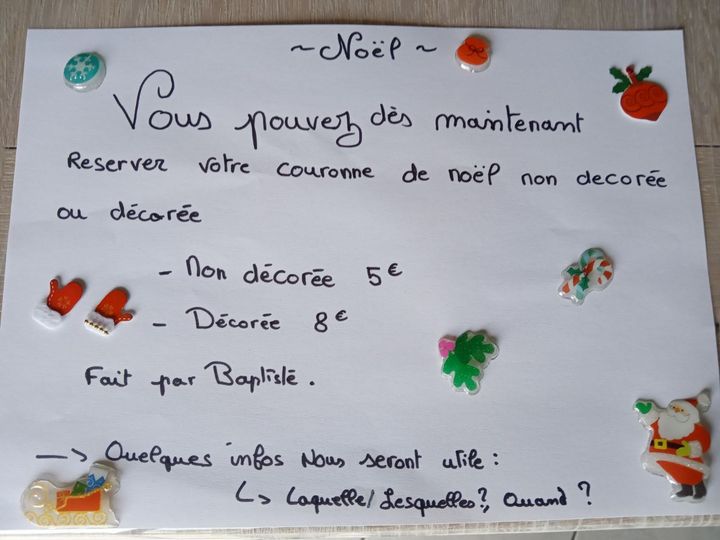 ~ Noël ~
Vous pouvez dès maintenant
Reserver votre couronne de noël non decorée
ou décorée
- Non décorée 5€
- Décorée 8€
Fait par Baptiste.
—> Quelques infos nous seront utile :
↳ Laquelle/Lesquelles?, Quand ?